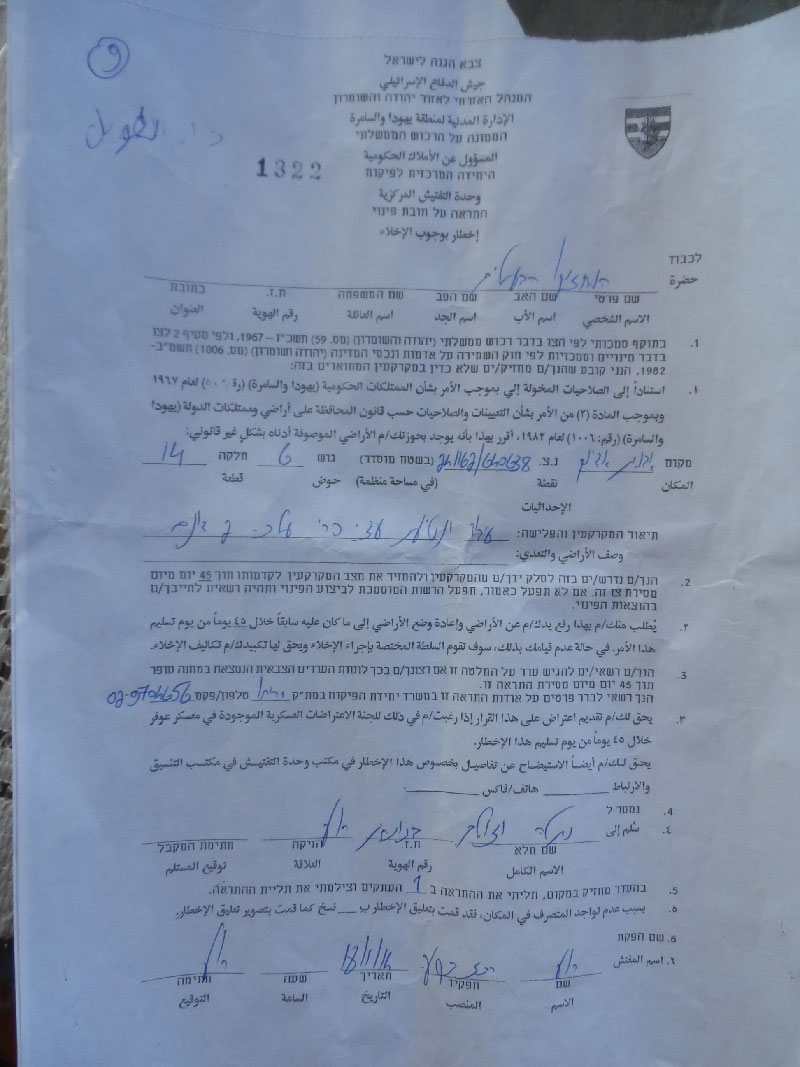 9
דار الطويل
צבא הגנה לישראל
جيش الدفاع الإسرائيلي
המנהל האזרחי לאזור יהודה והשומרון
الإدارة المدنية لمنطقة يهودا والسامرة
הממונה על הרכוש הממשלתי
المسؤول عن الأملاك الحكومية
היחידה המרכזית לפיקוח
وحدة التفتيش المركزية
התראה על חובת פינוי
إخطار بوجوب الإخلاء
1322
לכבוד
حضرة
שם פרטי שם האב שם הסב שם המשפחה ת.ז. כתובת
الاسم الشخصي اسم الأب اسم الجد اسم العائلة رقم الهوية العنوان
1. בתוקף סמכותי לפי הצו בדבר רכוש ממשלתי (יהודה והשומרון) (מס. 59) תשכ"ז – 1967, ולפי סעיף 2 לצו
בדבר מינויים וסמכויות לפי חוק השמירה על אדמות ונכסי המדינה (יהודה ושומרון) (מס. 1006) תשמ"ב-
1982, הנני קובע שהנך/ם מחזיק/ים שלא כדין במקרקעין המתוארים בזה:
١. استناداً إلى الصلاحيات المخولة إلي بموجب الأمر بشأن الممتلكات الحكومية (يهودا والسامرة) لعام ١٩٦٧
وبموجب المادة (٢) من الأمر بشأن التعيينات والصلاحيات حسب قانون المحافظة على أراضي وممتلكات الدولة (يهودا
والسامرة) (رقم: ١٠٠٦) لعام ١٩٨٢، أقرر بهذا بأنه يوجد بحوزتك/م الأراضي الموصوفة أدناه بشكل غير قانوني:
מקום נ.צ. (בשטח מוסדר) גוש 6 חלקה 14
المكان نقطة (في مساحة منظمة) حوض قطعة
الإحداثيات
תיאור המקרקעין והפלישה:
وصف الأراضي والتعدي:
2. הנך/ם נדרש/ים בזה לסלק ידך/ם מהמקרקעין ולהחזיר את מצב המקרקעין לקדמותו תוך 45 יום מיום
מסירת צו זה. אם לא תפעל כאמור, תפעל הרשות המוסמכת לביצוע הפינוי ותהיה רשאית לחייבך/ם
בהוצאות הפינוי.
٢. يُطلب منك/م بهذا رفع يدك/م عن الأراضي وإعادة وضع الأراضي إلى ما كان عليه سابقاً خلال ٤٥ يوماً من يوم تسليم
هذا الأمر. في حالة عدم قيامك بذلك، سوف تقوم السلطة المختصة بإجراء الإخلاء ويحق لها تكبيدك/م تكاليف الإخلاء.
3. הנך/ם רשאי/ים להגיש ערר על החלטה זו אם רצונך/ם בכך לועדת העררים הצבאית הנמצאת במחנה עופר
תוך 45 יום מיום מסירת התראה זו.
הנך רשאי לברר פרטים על אודות התראה זו במשרד יחידת הפיקוח במת"ק טלפון/פקס
٣. يحق لك/م تقديم اعتراض على هذا القرار إذا رغبت/م في ذلك للجنة الاعتراضات العسكرية الموجودة في معسكر عوفر
خلال ٤٥ يوماً من يوم تسليم هذا الإخطار.
يحق لك/م أيضاً الاستيضاح عن تفاصيل بخصوص هذا الإخطار في مكتب وحدة التفتيش في مكتب التنسيق
والارتباط هاتف/فاكس
4. נמסר ל
٤. سُلم إلى
שם מלא ת.ז. הזיקה חתימת המקבל
الاسم الكامل رقم الهوية العلاقة توقيع المستلم
5. בהעדר מחזיק במקום, תליתי את ההתראה ב 1 העתקים וצילמתי את תליית ההתראה.
٥. بسبب عدم تواجد المتصرف في المكان، فقد قمت بتعليق الإخطار ب نسخ كما قمت بتصوير تعليق الإخطار.
6. שם הפקח
٦. اسم المفتش
שם תפקיד תאריך שעה חתימה
الاسم المنصب التاريخ الساعة التوقيع